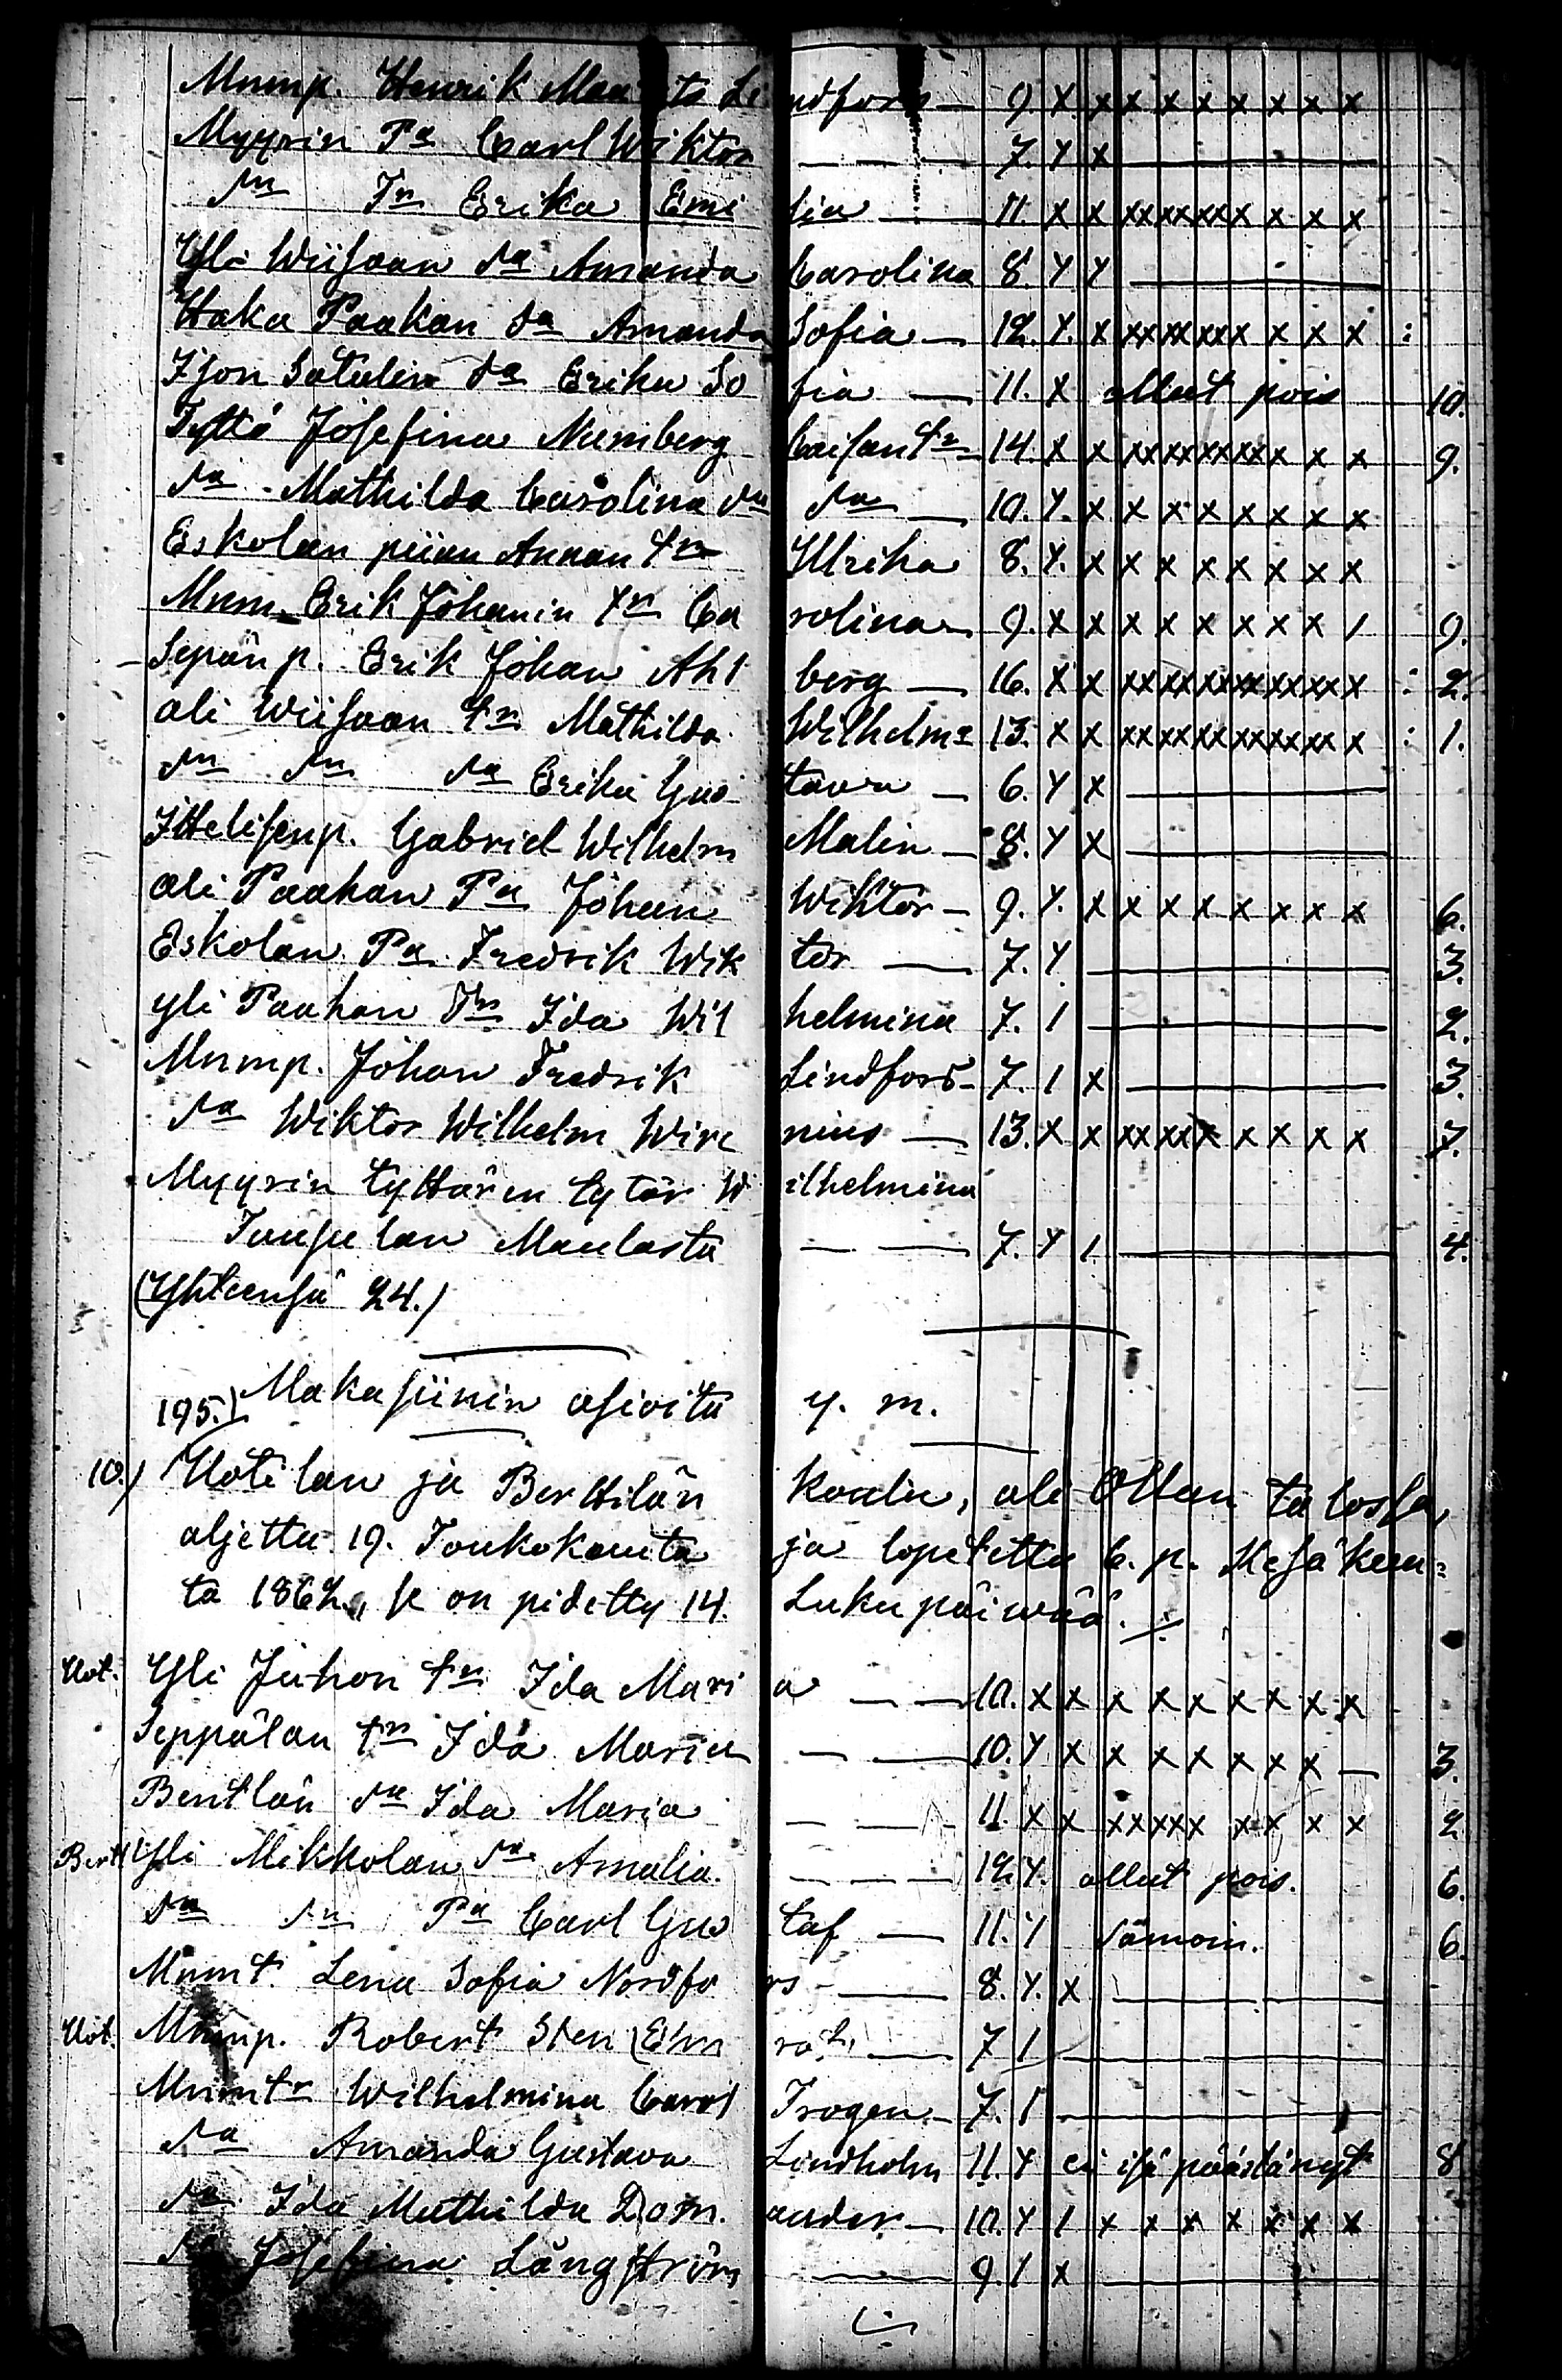 Mnmp. Henrik Mau ts Lindfors — 9. X. x x x x x x x x
Myyrin Pa Carl Wiktor — — — 7. Y x —
sn Tr Erika Emilia — 11. x x xx xx xx x x x x
Yli Wiisaan sa Amanda Carolina 8. Y Y —
Haka Paakan sa Amanda Sofia — 12. Y. x xx xx xx x x x x :
Ison Satulin sa Erika Sofia — 11. X ollut pois 10.
Tyttö Josefina Numberg Caisan tr 14. x x xx xx xx xx x x x 9.
sa Mathilda Carolina sa sa — 10. Y. x x x x x x x x
Eskolan piian Annan tr Ulrika 8. Y. x x x x x x x x
Mnm Erik Johanin tr Carolina — 9. X x x x x x x x / 9.
— Sepän p. Erik Johan Ahlberg — 16. X x xx xx xx xx xx xx x : 2.
ali Wiisaan tr Mathilda Wilhelma 13. X x xx xx xx xx xx xx x : 1.
sn sn sa Erika Gustava — 6. Y x —
Ittelisenp. Gabriel Wilhelm Malin — 8. Y x —
ali Paakan Pa Johan Wiktor — 9. Y. x x x x x x x x 6.
Eskolan Pa Fredrik Wiktor — 7. Y — 3.
yli Paakan Tr Ida Wilhelmina 7. 1 — 2.
Mnmp. Johan Fredrik Lindfors — 7. 1 x — 3.
sa Wiktor Wilhelm Wirenius — 13. x x xx xx x x x x x 7.
Myyrin tyttären tytär Wilhelmina
Juusulan Maulasta — — 7. Y 1. — 4.
(Yhteensä 24.)
195.) Makasiinin asioita y. m.
10.) Uotilan ja Berttilän koulu, ali Ollan talossa,
aljettu 19. Toukokauta ja lopetettu 6. p. Kesäkuu=
ta 1862., se on pidetty 14. Lukupäiwää.
Uot. Yli Juhon tr Ida Maria — — 10. x x x x x x x x x
Seppälän tr Ida Maria — — 10. Y x x x x x x x — 3.
Benttlän sa Ida Maria — — 11. x x xx xx x x x x x 2
Bertt. Yli Mikkolan sa Amalia. — — — 12. Y. ollut pois. 6.
sa sn Pa Carl Gustaf — 11. Y sämoin. 6.
Mnmt. Lena Sofia Nordfors — 8. Y. x —
Uot. Mnmp. Robert Sten 7 1 —
Mnmtr Wilhelmina Carol Trogen — 7. 1 —
sa Amanda Gustava Lindholm 11. Y ei isä päästänyt 8
sa Ida Mathilda Domander — 10. Y 1 x x x x x x x
sa Josefina Långström — 9. 1 x —